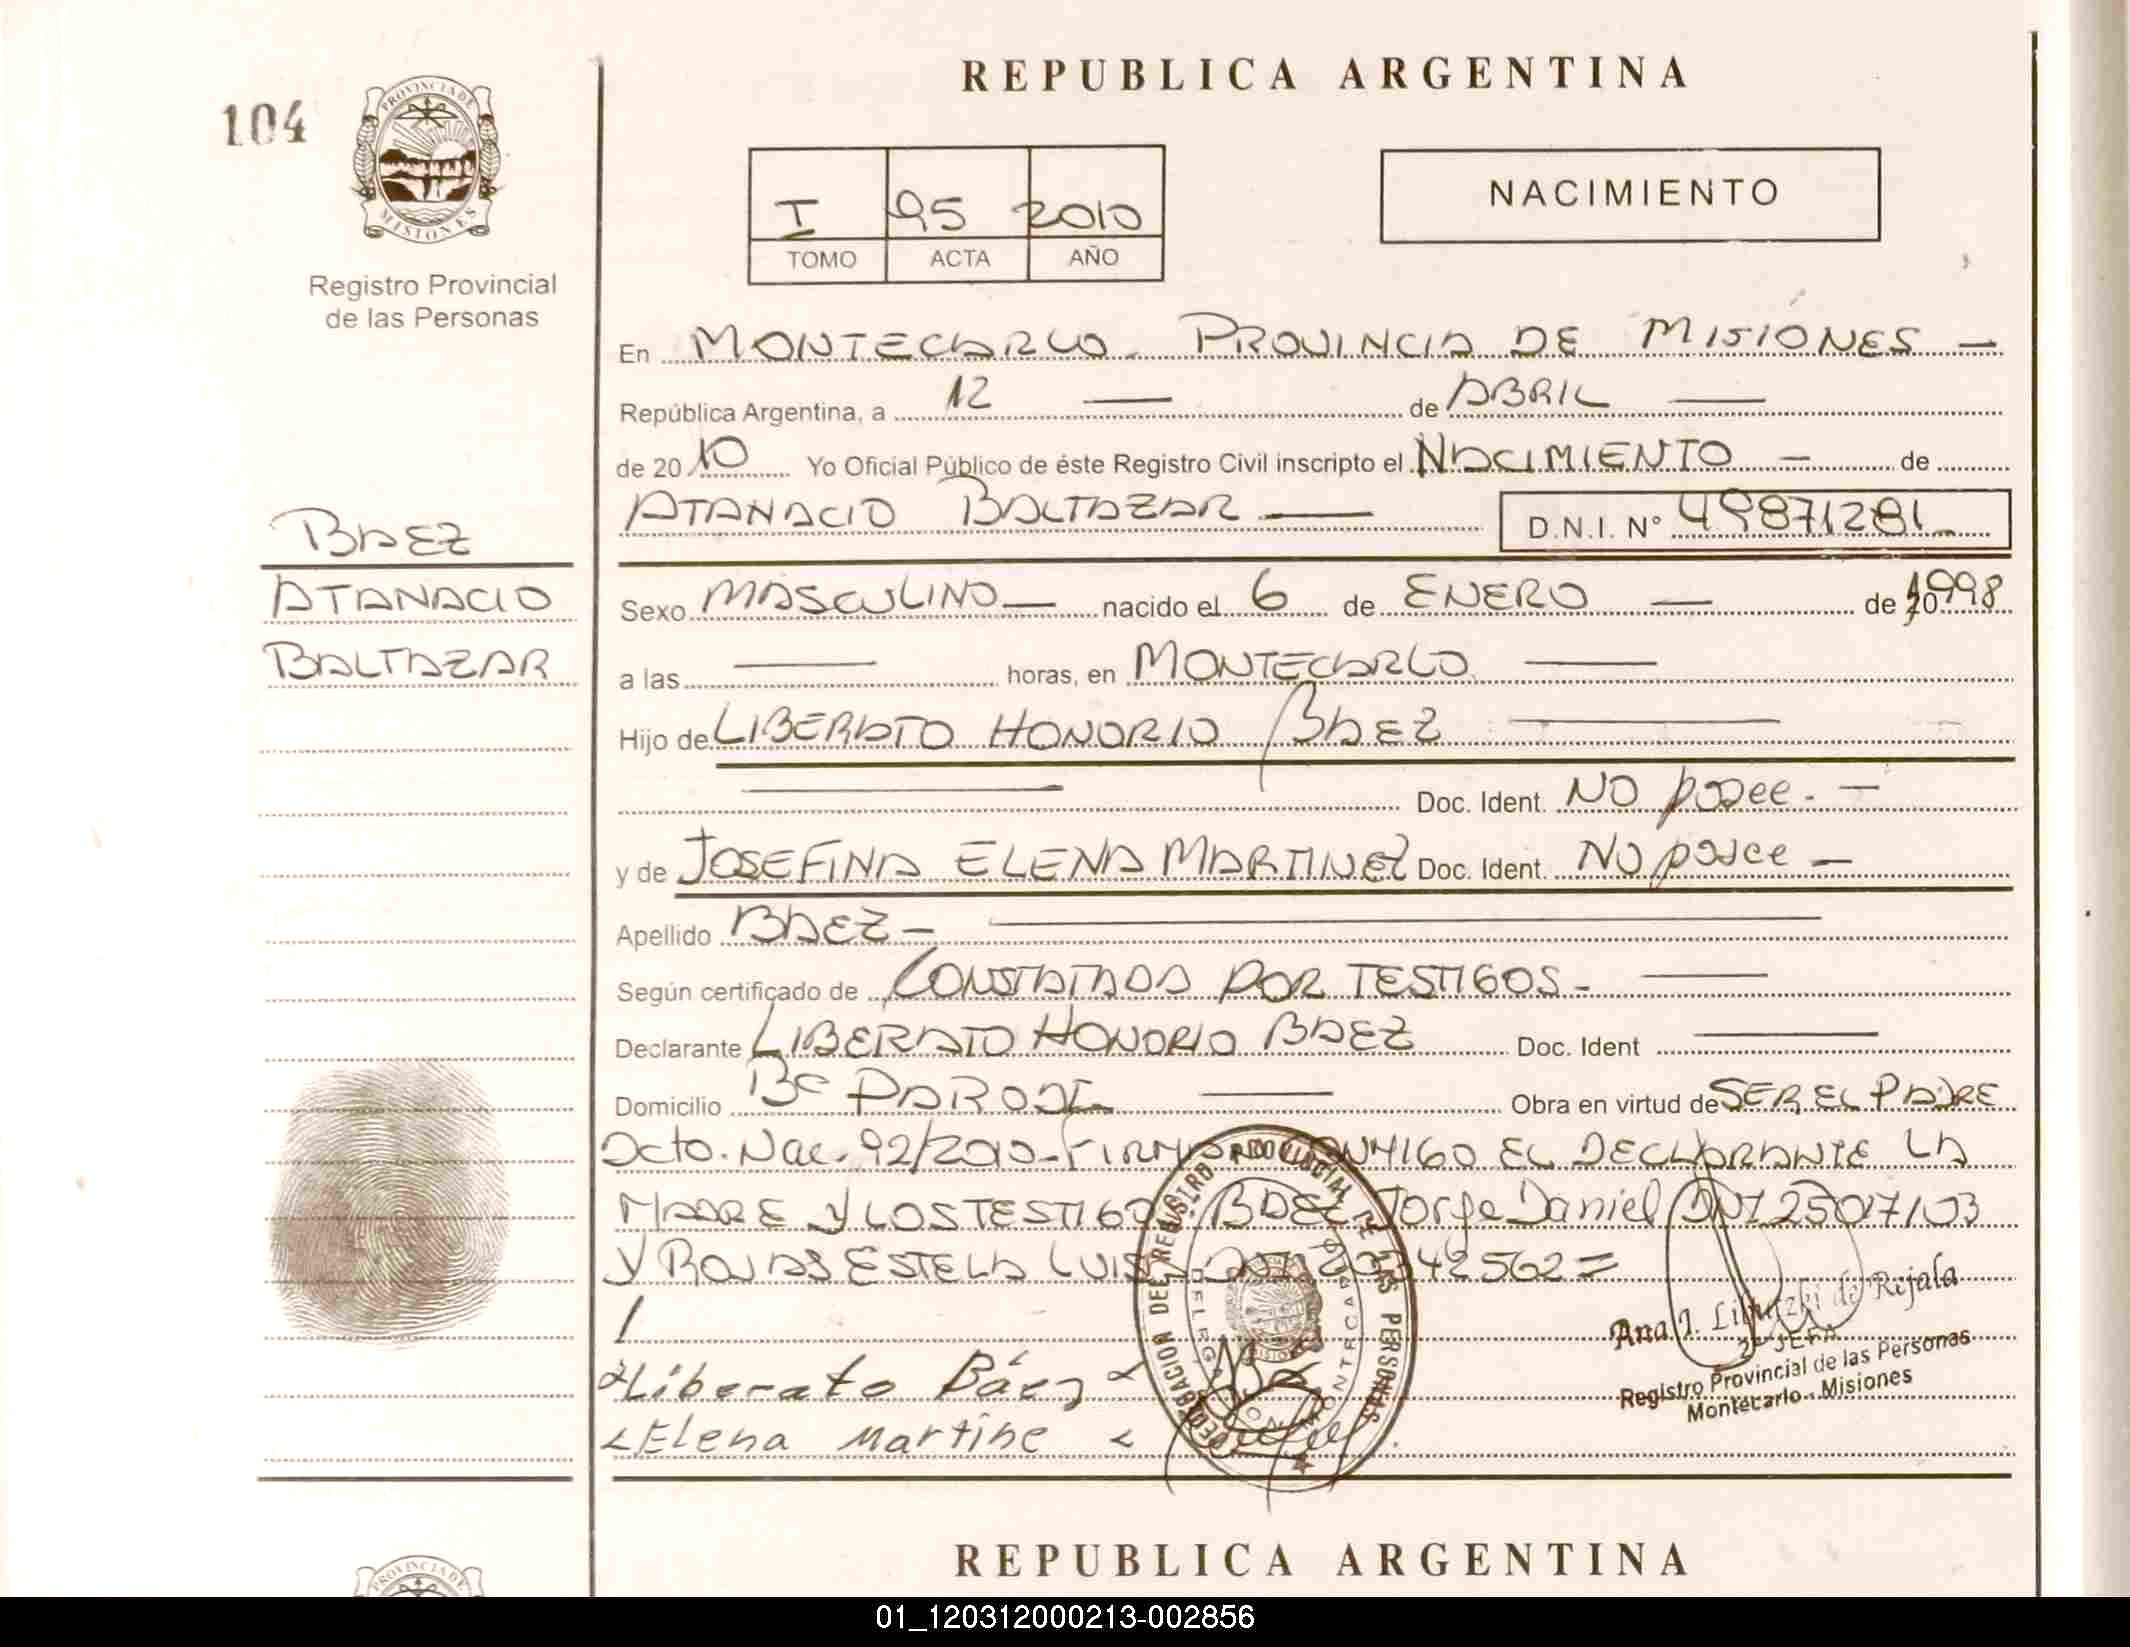 REPUBLICA ARGENTINA
104
PROVINCIA DE
MISIONES
Registro Provincial
de las Personas
I 95 2010
TOMO ACTA AÑO
NACIMIENTO
En MONTECARLO. PROVINCIA DE MISIONES —
República Argentina, a 12 — de ABRIL —
de 2010 Yo Oficial Público de éste Registro Civil inscripto el NACIMIENTO — de
ATANACIO BALTAZAR — D.N.I. N° 49871281
BAEZ
ATANACIO
BALTAZAR
Sexo MASCULINO — nacido el 6 de ENERO — de 1998
a las — horas, en MONTECARLO —
Hijo de LIBERATO HONORIO BAEZ —
— Doc. Ident. NO posee. —
y de JOSEFINA ELENA MARTINEZ Doc. Ident. NO posee —
Apellido BAEZ —
Según certificado de CONSTATADA POR TESTIGOS —
Declarante LIBERATO HONORIO BAEZ Doc. Ident —
Domicilio B° PARODI — Obra en virtud de SER EL PADRE
Dcto. Nac. 92/2010 EL DECLARANTE LA
MADRE Y LOS TESTIGO BAEZ Jorge Daniel DNI
Y ROJAS ESTELA LUISA
Liberato Báez
Elena Martine
DELEGACION DEL REGISTRO PROVINCIAL DE LAS PERSONAS
Ana J. de Rejala
2° JEFA
Registro Provincial de las Personas
Montecarlo - Misiones
REPUBLICA ARGENTINA
PROVINCIA DE
01_120312000213-002856